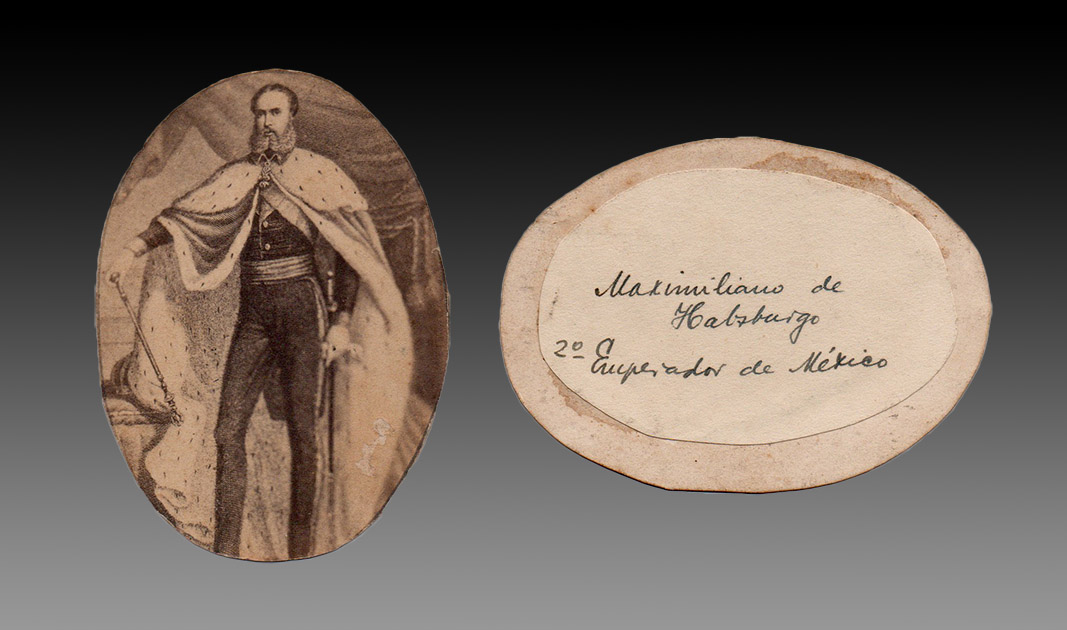 Maximiliano de
Habsburgo
2º Emperador de México